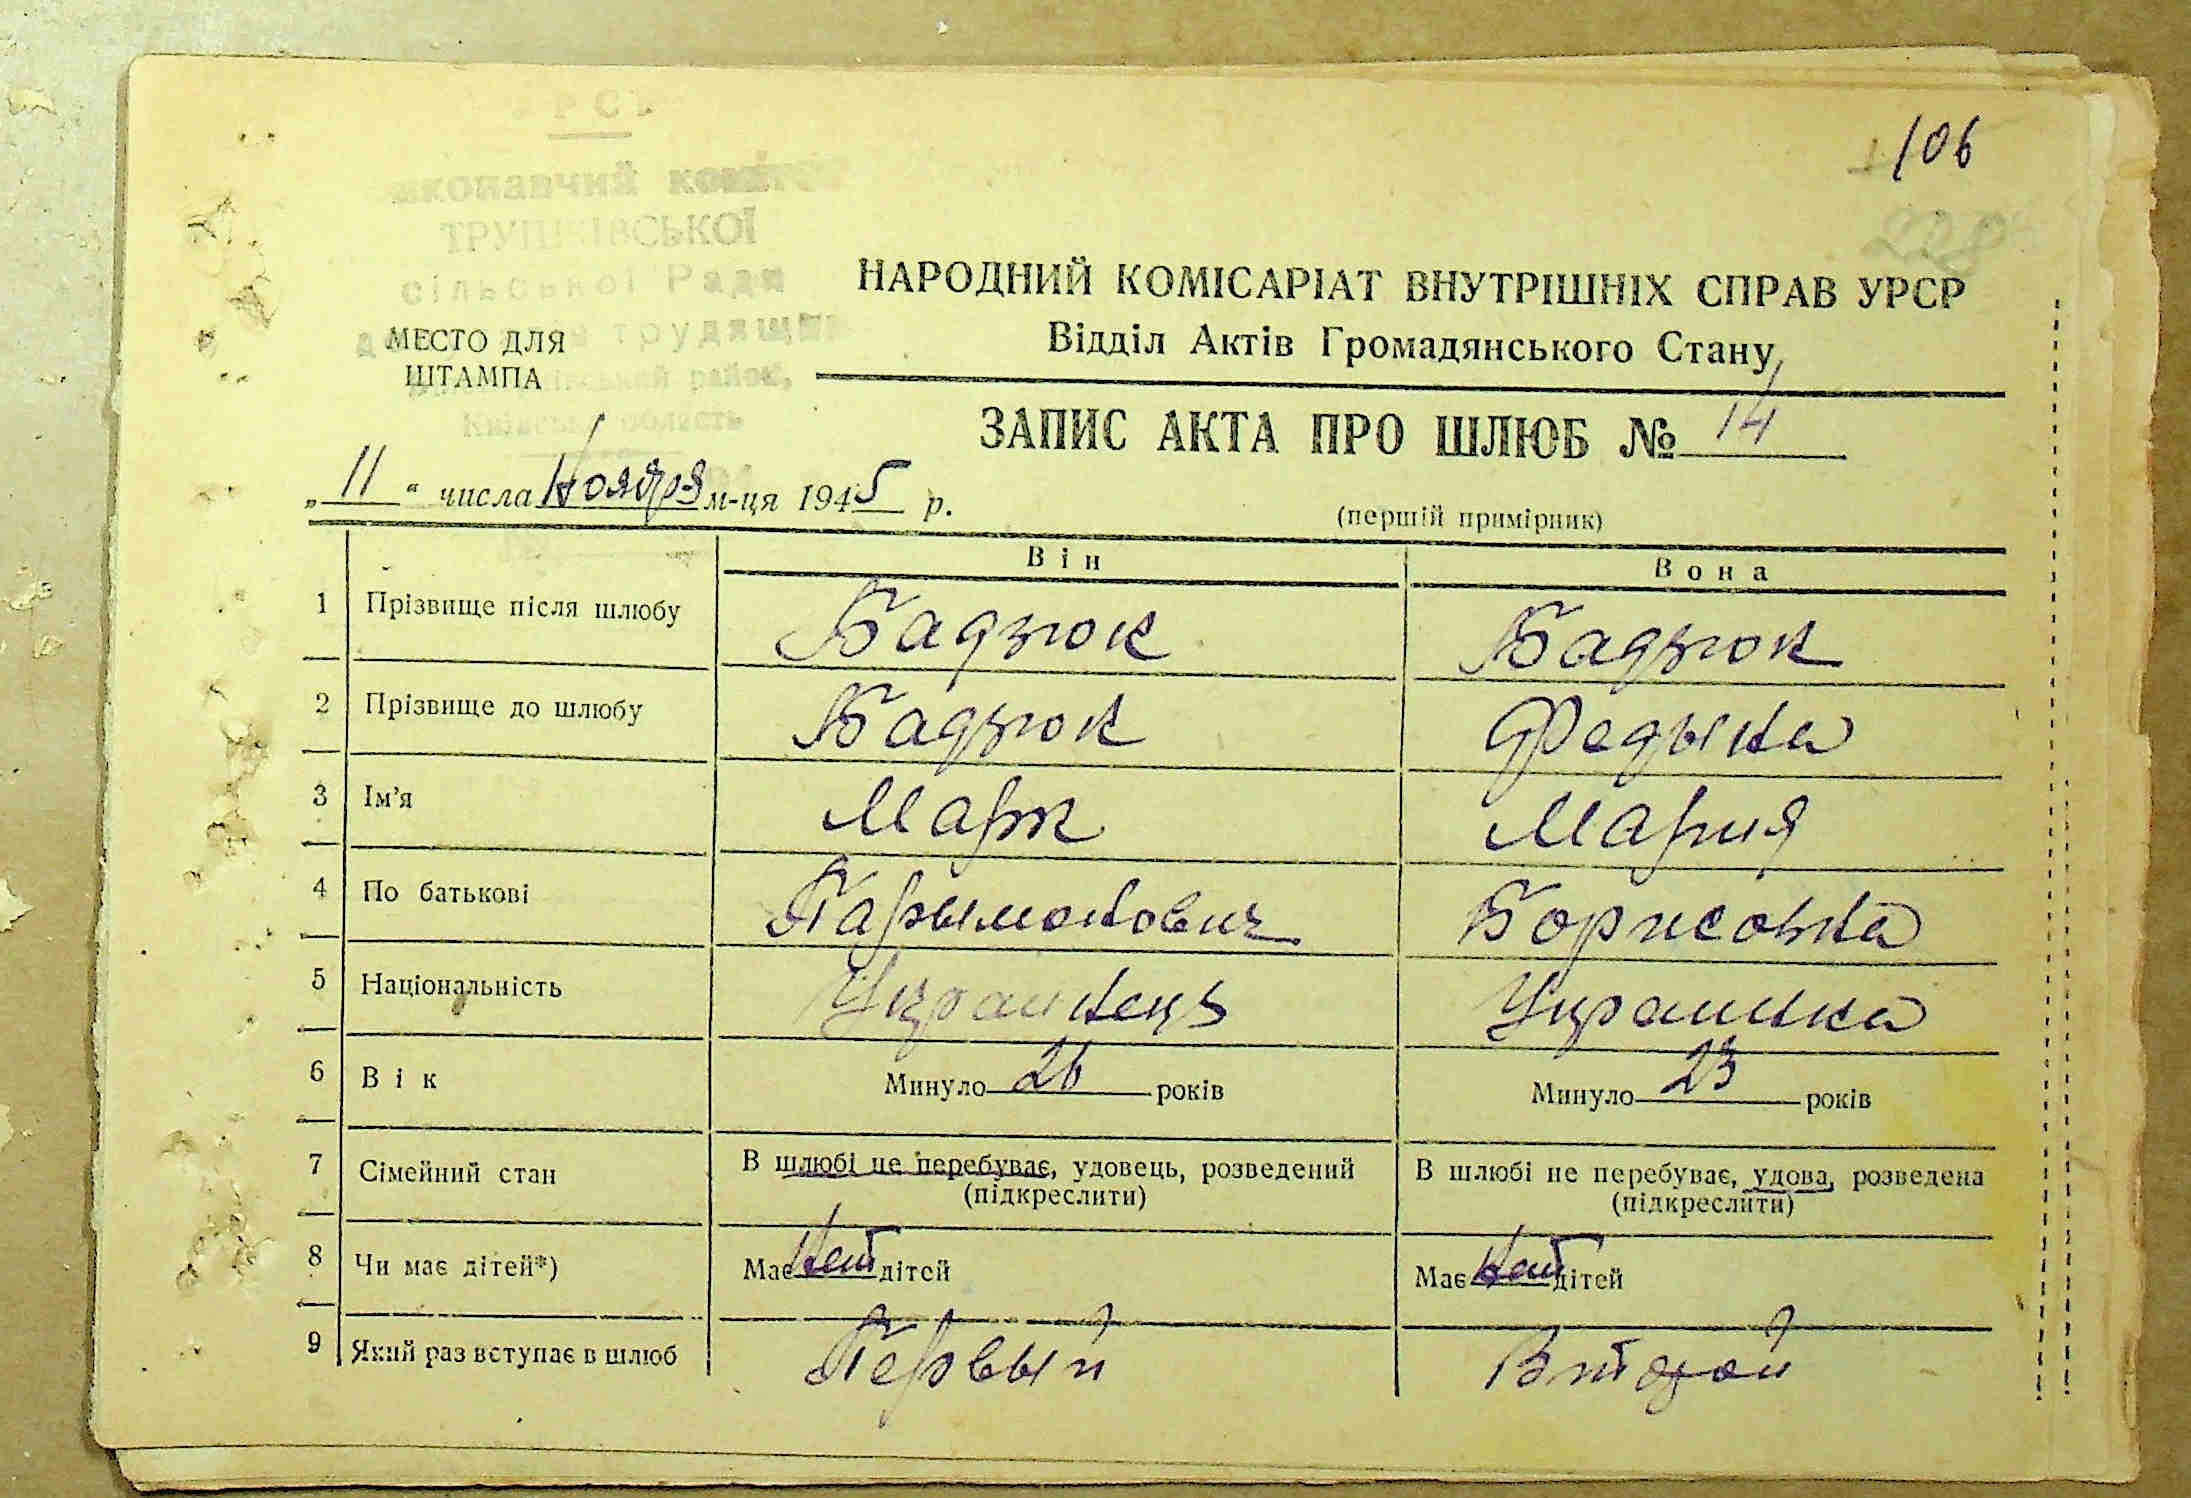 106
228
виконавчий комітет
ТРУШКІВСЬКОЇ
сільської Ради
трудящих
район,
Київська область
МЕСТО ДЛЯ
ШТАМПА
НАРОДНИЙ КОМІСАРІАТ ВНУТРІШНІХ СПРАВ УРСР
Відділ Актів Громадянського Стану
ЗАПИС АКТА ПРО ШЛЮБ № 14
„11“ числа Ноября м-ця 1945 р.
(перший примірник)
Він Вона
1 Прізвище після шлюбу Бадзюк Бадзюк
2 Прізвище до шлюбу Бадзюк Федына
3 Ім'я Марк Мария
4 По батькові Парымонович Борисовна
5 Національність Украинець Украинка
6 Вік Минуло 26 років Минуло 23 років
7 Сімейний стан В шлюбі не перебуває, удовець, розведений В шлюбі не перебуває, удова, розведена
(підкреслити) (підкреслити)
8 Чи має дітей*) Має Нет дітей Має Нет дітей
9 Який раз вступає в шлюб Первый Второй